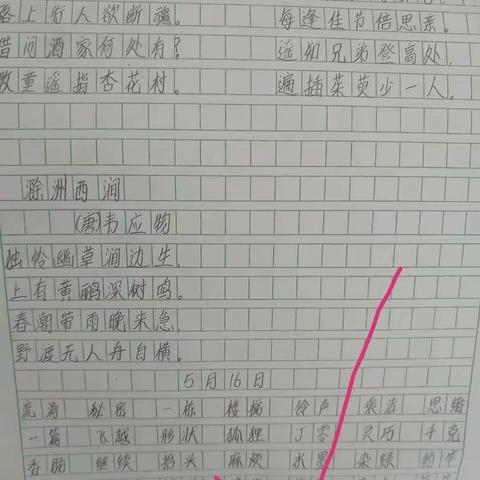 路上行人欲断魂。 每逢佳节倍思亲。
借问酒家何处有? 遥知兄弟登高处,
牧童遥指杏花村。 遍插茱萸少一人。
滁洲西涧
(唐)韦应物
独怜幽草涧边生,
上有黄鹂深树鸣。
春潮带雨晚来急,
野渡无人舟自横。
5月16日
秘密 一栋 楼梯 铃声 乘法 思绪
一篇 飞越 形状 狐狸 丁零 灵巧 千克
香肠 继续 抬头 麻烦 水墨 染绿